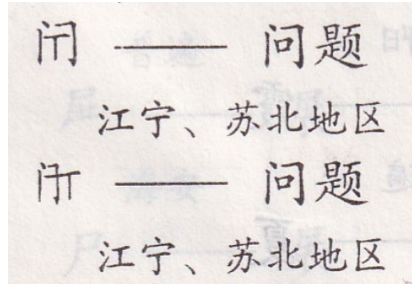 —— 问题
江宁、苏北地区
—— 问题
江宁、苏北地区